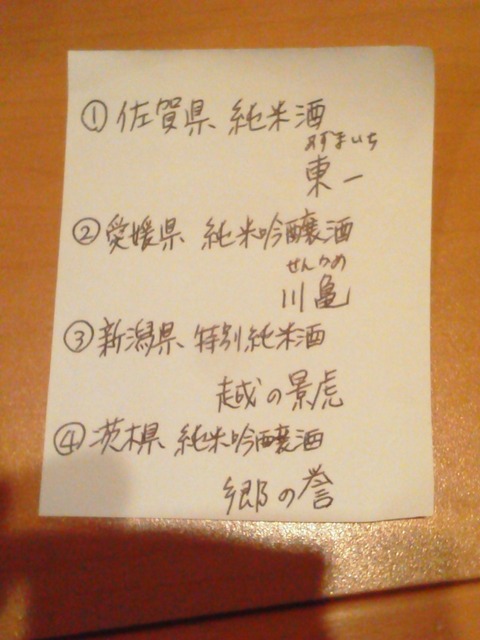 ①佐賀県 純米酒
あずまいち
東一
②愛媛県 純米吟醸酒
せんかめ
川亀
③新潟県 特別純米酒
越の景虎
④茨木県 純米吟醸酒
郷の誉